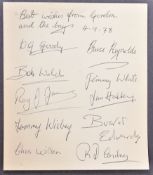 "Best wishes from Gordon
and the boys 4-9-78
D G Goody Bruce Reynolds
Bob Welch Jimmy White
Roy J James Jim Hussey
Tommy Wisbey Buster
Edwards
Chas Wilson R A Cordrey